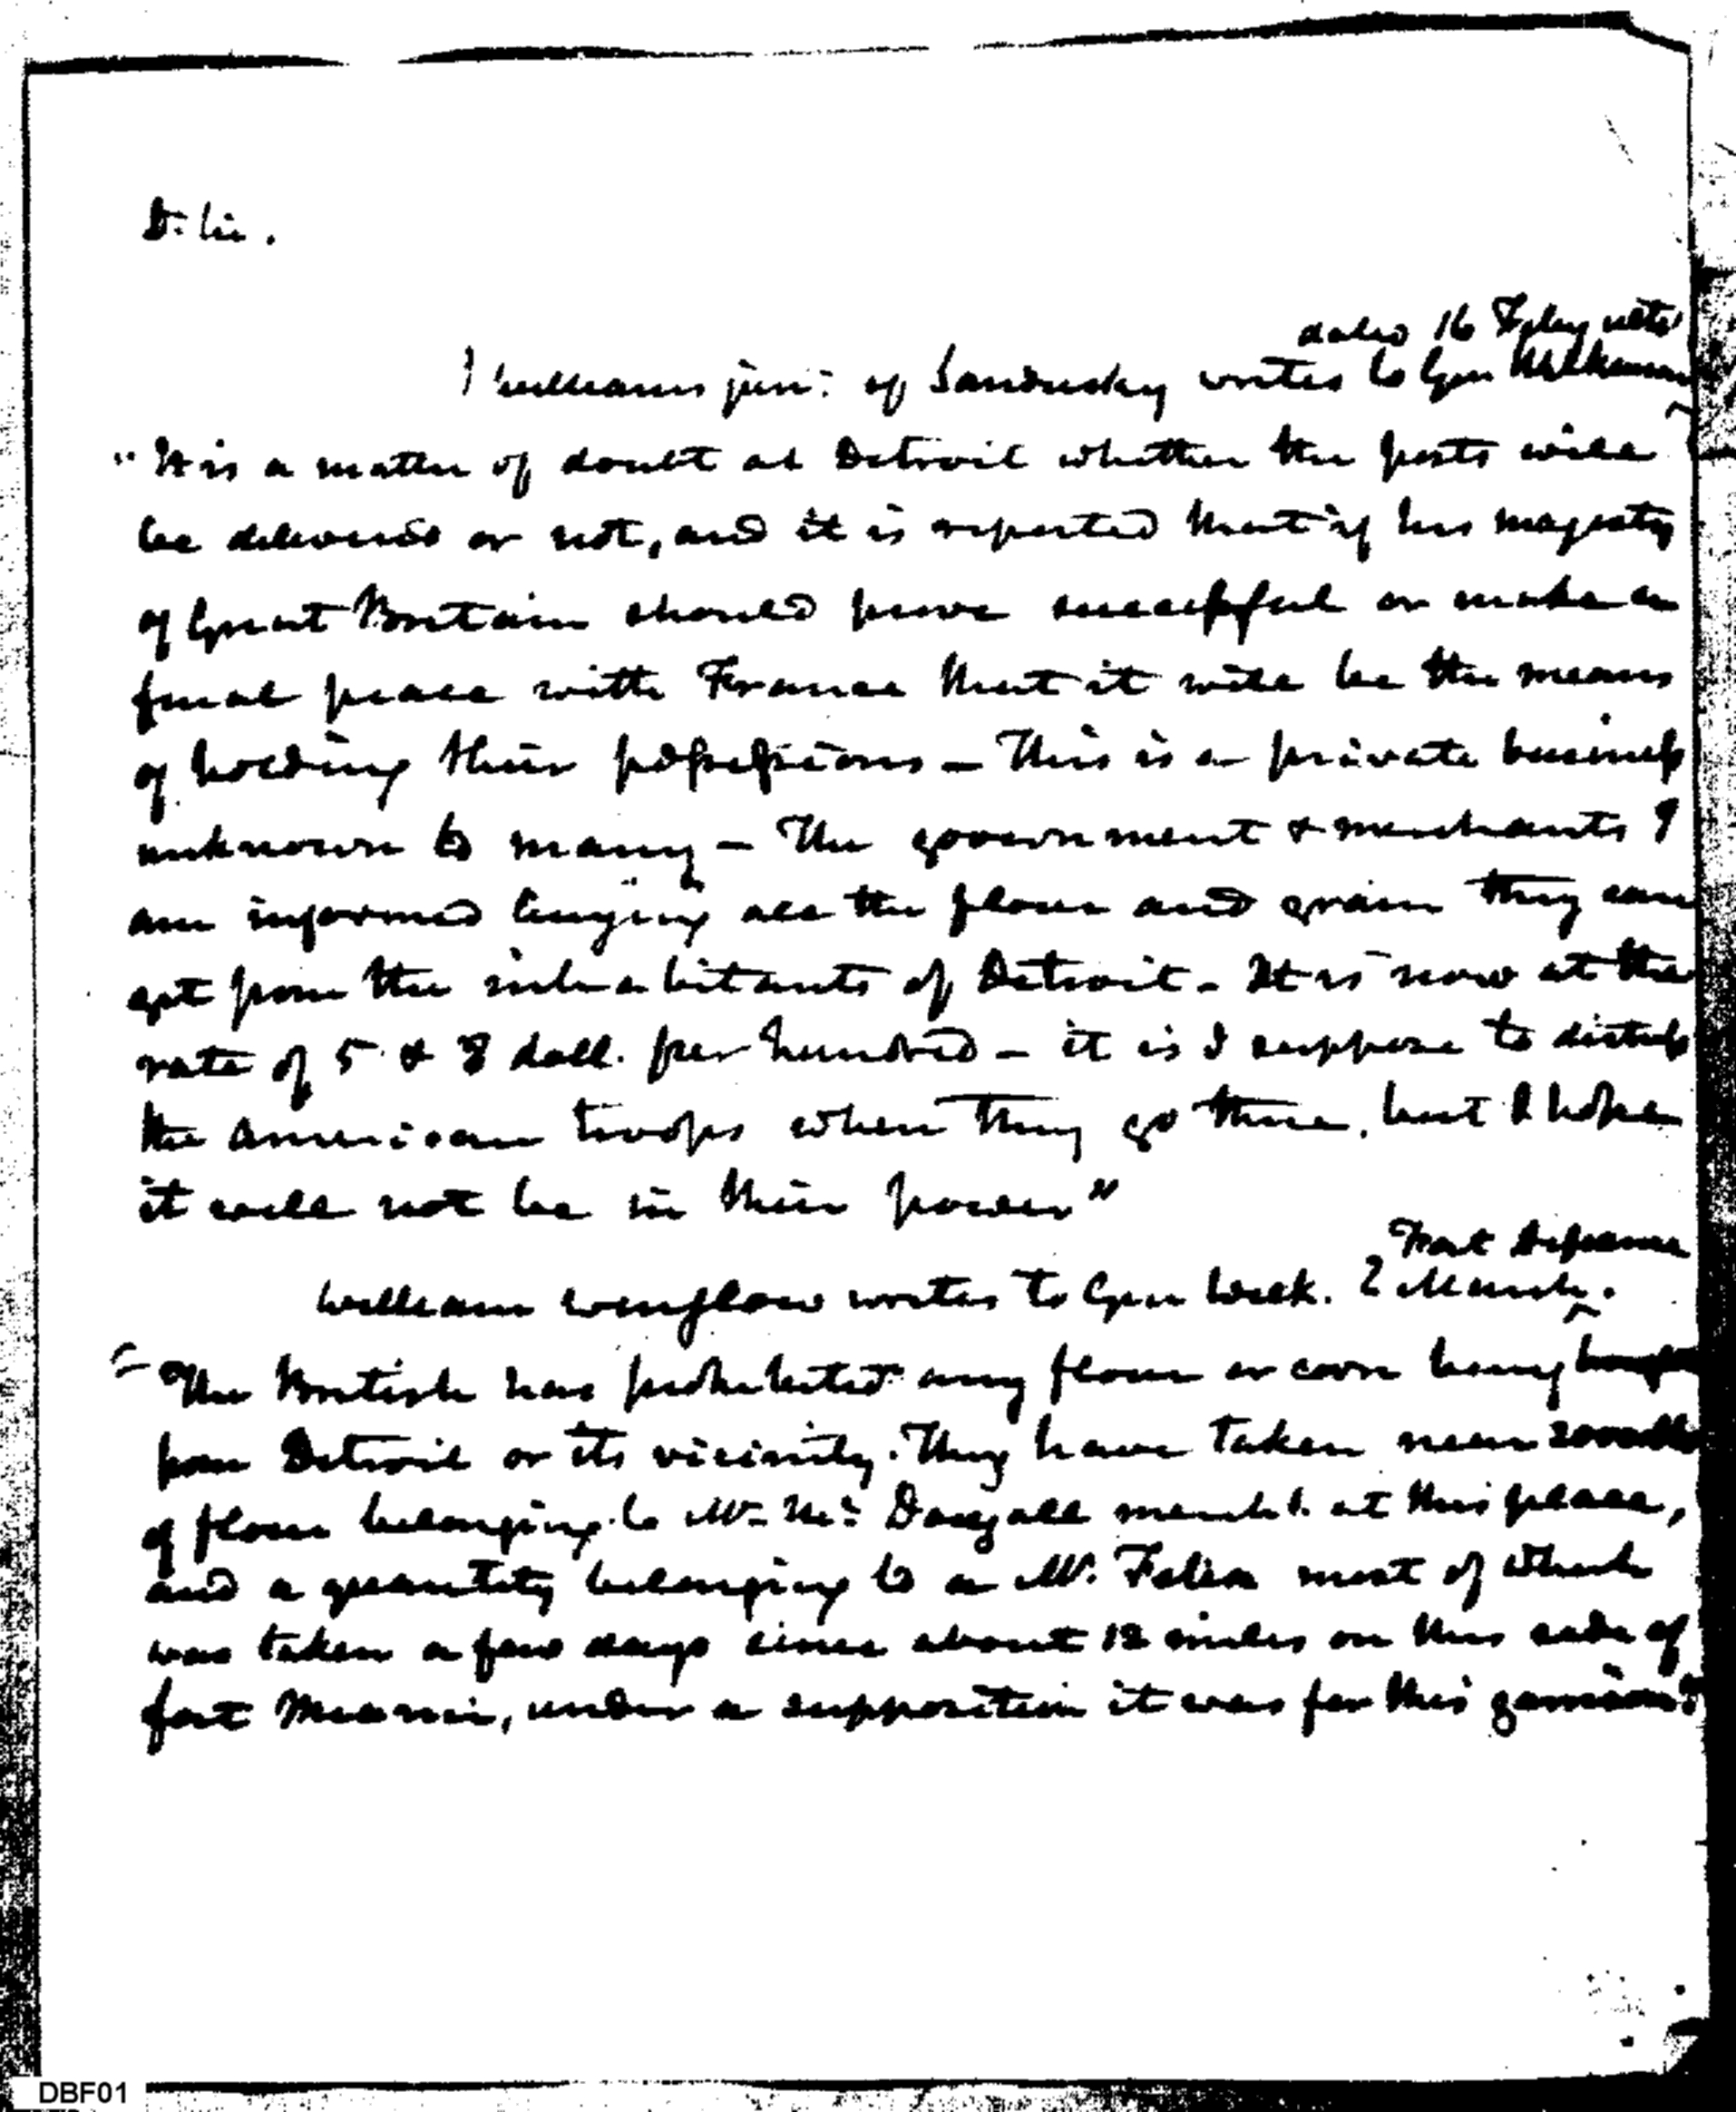 D. Sir.
dated 16 Feby ulto
I Williams junr. of Sandusky writes to Gen Wilkinson
"It is a matter of doubt at Detroit whether the posts will
be delivered or not, and it is reported that if his majesty
of Great Britain should prove successful or make a
final peace with France that it will be the means
of holding their possessions – This is a private business
unknown to many – The government & merchants I
am informed buying all the flour and grain they can
get from the inhabitants of Detroit. It is now at the
rate of 5 & 8 doll. per hundred – it is I suppose to
the American troops when they go there, but I hope
it will not be in their power"
Fort Defiance
William Winslow writes to Gen Wilk. 2 March.
"The British has prohibited any flour or corn being
from Detroit or its vicinity. They have taken near
of flour belonging to Mr. Mc. Dougall mercht. at this place,
and a quantity belonging to a Mr. most of which
was taken a few days since about 12 miles on this side of
fort Miami, under a supposition it was for this garrison"
DBF01